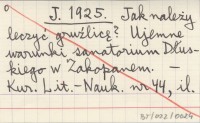 0
J. 1925. Jak należy
leczyć gruźlicę? Ujemne
warunki sanatorium Dłus-
kiego w Zakopanem. -
Kur. Lit.-Nauk. nr 44, il.
BJ/072/0024